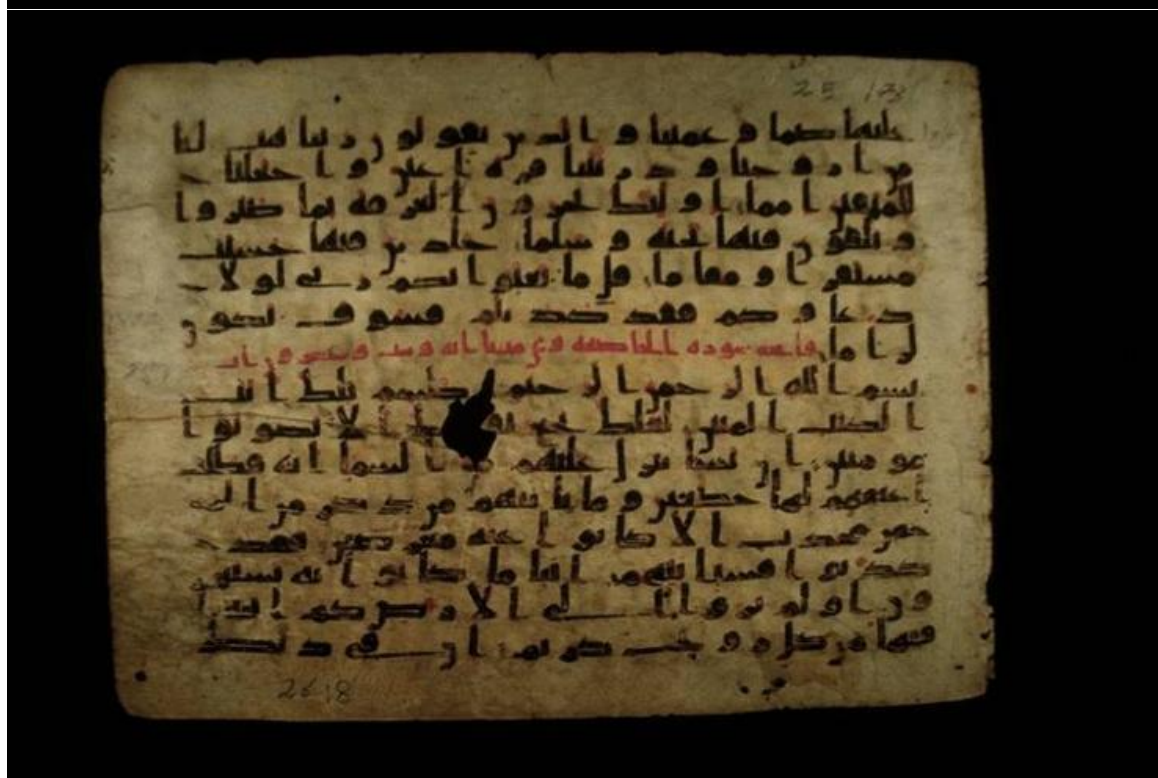 25 /73
عليها صما و عميانا و الذين يقولون ربنا هب لنا
من ازوجنا و ذريتنا قرة اعين و اجعلنا
للمتقين اماما اولئك يجزون الغرفة بما صبروا
و يلقون فيها تحية و سلما خلدين فيها حسنت
مستقرا و مقاما قل ما يعبوا بكم ربي لولا
دعاوكم فقد كذبتم فسوف يكون
لزاما
بسم الله الرحمن الرحيم طسم تلك ايت
الكتب المبين لعلك بخع نفسك الا يكونوا
مومنين ان نشا ننزل عليهم من السما اية فظلت
اعنقهم لها خضعين و ما ياتيهم من ذكر من الر
حمن محدث الا كانوا عنه معرضين فقد
كذبوا فسياتيهم انبوا ما كانوا به يستهز
ون اولم يروا الى الارض كم انبتنا
فيها من كل زوج كريم ان في ذلك
26:8